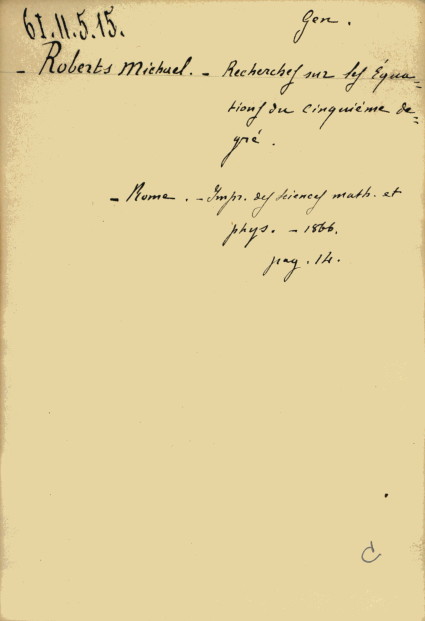 61.11.5.15.
Gen.
- Roberts Michael. - Recherches sur les Équa=
tions du cinquième de=
gré.
- Rome. - Impr. des sciences math. et
phys. - 1866.
pag. 14.
C